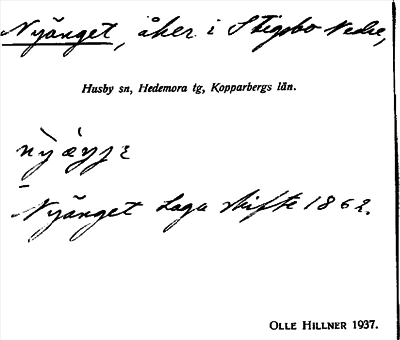 Nyänget, åker i Stigsbo Nedre,
Husby sn, Hedemora tg, Kopparbergs län.
Nyänget Laga skifte 1862.
OLLE HILLNER 1937.